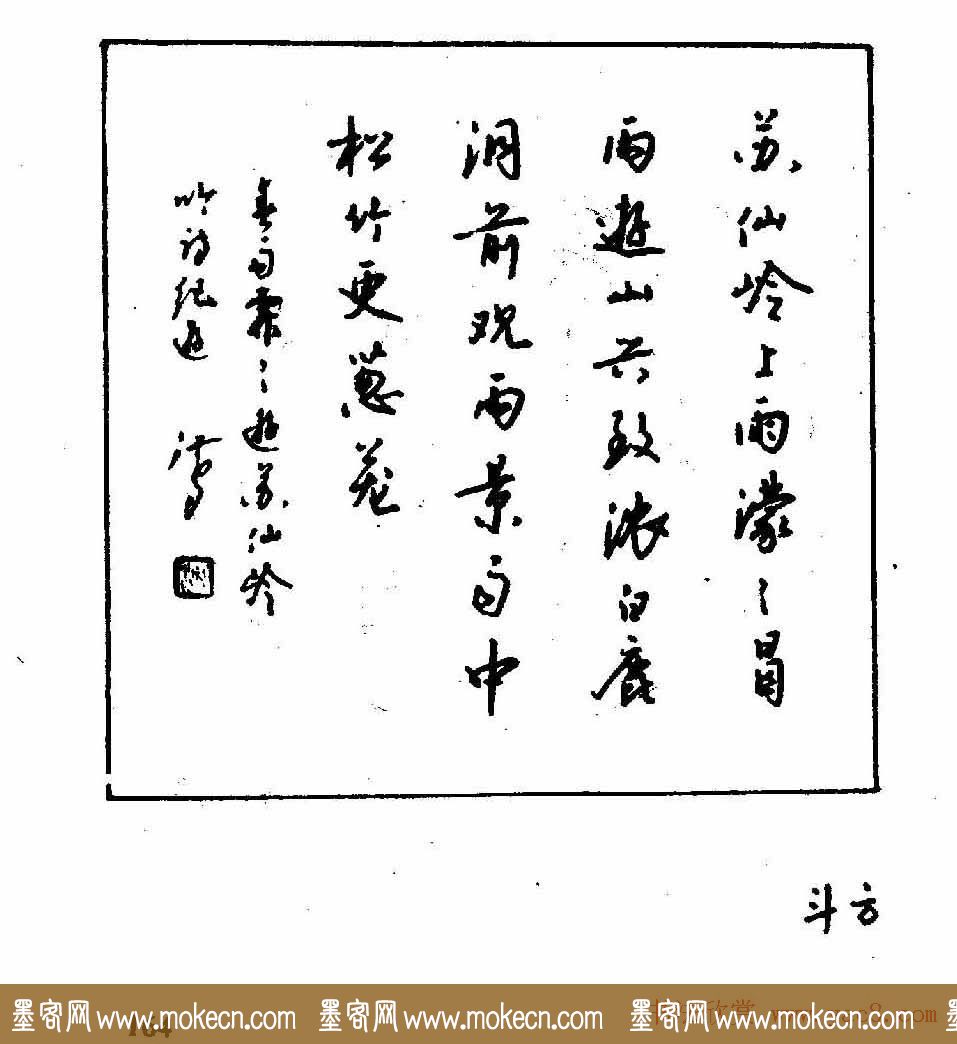 苏仙岭上雨濛々冒
雨遊山兴致浓白鹿
洞前观雨景雨中
松竹更葱茏
春雨霏々遊苏仙岭
吟诗纪遊
方斗
164
墨客网 www.mokecn.com 墨客网 www.mokecn.com 墨客网 www.mokecn.com 墨